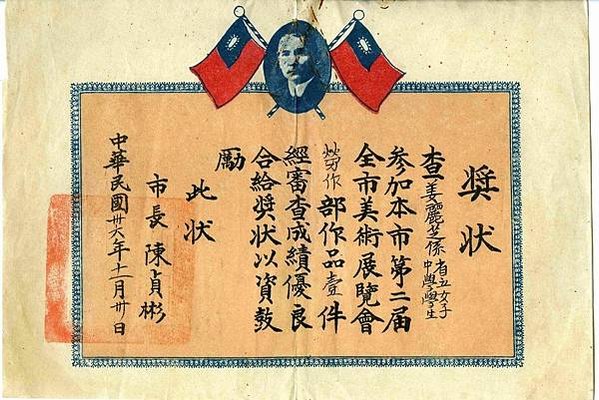 奬状
查姜麗芝係省立女子中學學生
參加本市第二届
全市美術展覽會
勞作部作品壹件
經審查成績優良
合給奬状以資鼓
勵
此状
市長陳貞彬
中華民國卅六年十二月卅日